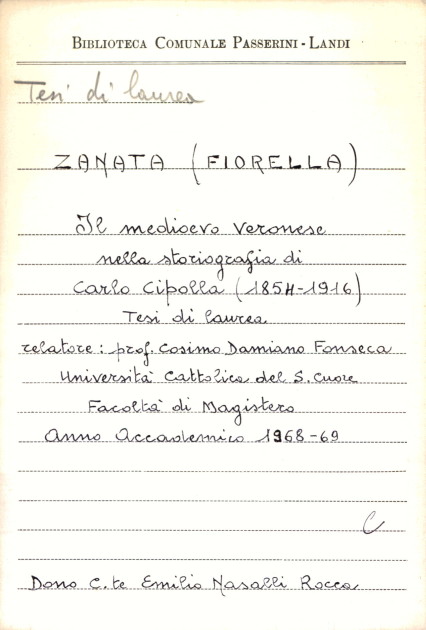 BIBLIOTECA COMUNALE PASSERINI - LANDI
Tesi di laurea
ZANATA (FIORELLA)
Il medioevo veronese
nella storiografia di
Carlo Cipolla (1854-1916)
Tesi di laurea
relatore: prof. Cosimo Damiano Fonseca
Università Cattolica del S. Cuore
Facoltà di Magistero
Anno Accademico 1968-69
C
Dono C.te Emilio Nasalli Rocca